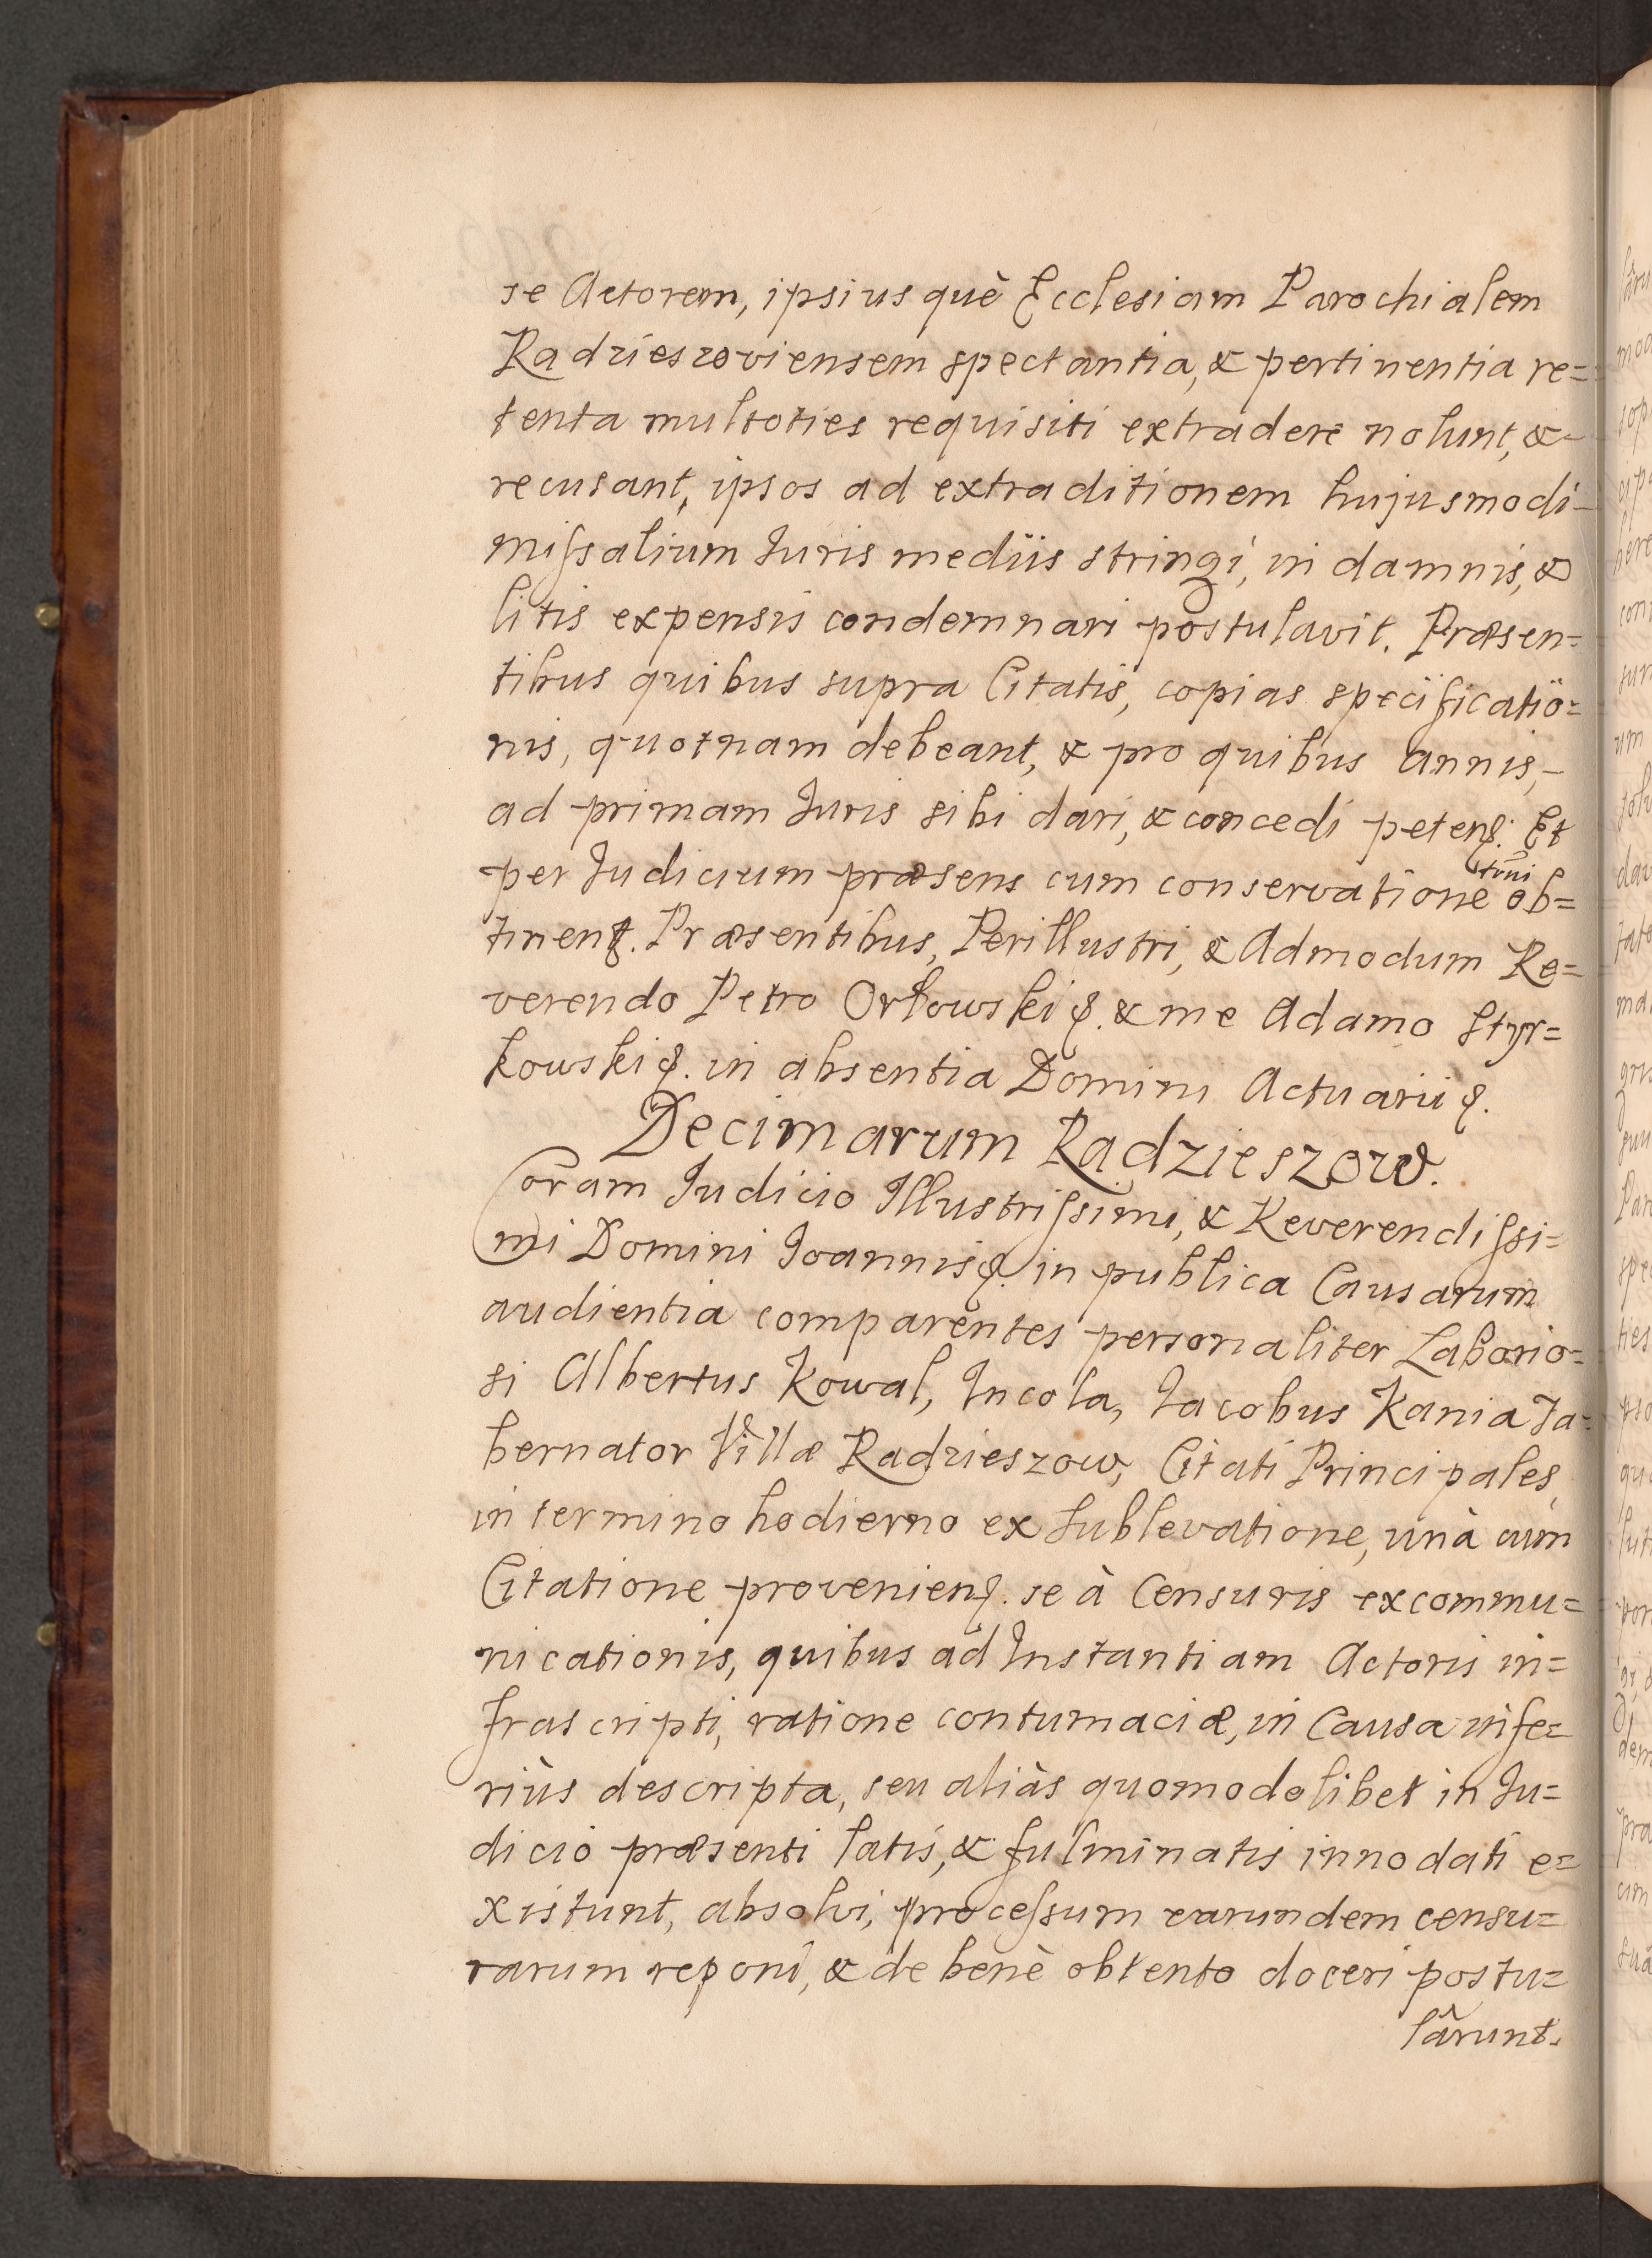 se Actorem, ipsiusquè Ecclesiam Parochialem
Radzieszoviensem spectantia, & pertinentia re=
tenta multoties requisiti extradere nolunt, &
recusant, ipsos ad extraditionem hujusmodi
mißalium Iuris mediis stringi, in damnis, &
litis expensis condemnari postulavit. Præsen=
tibus quibus supra Citatis, copias specificatio=
nis, quotnam debeant, & pro quibus annis,
ad primam Iuris sibi dari, & concedi peten. Et
per Iudicium præsens cum conservatione tñi ob=
tinen. Præsentibus, Perillustri, & Admodum Re=
verendo Petro Orłowski &. & me Adamo Styr=
kowski &. in absentia Domini Actuarii &.
Decimarum Radzieszow.
Coram Iudicio Illustrißimi, & Reverendißi=
mi Domini Ioannis &. in publica Causarum
audientia comparentes personaliter Laborio=
si Albertus Kowal, Incola, Iacobus Kania Ta=
bernator Villæ Radzieszow, Citati Principales,
in termino hodierno ex sublevatione, unà cum
Citatione provenien. se à Censuris excommu=
nicationis, quibus ad Instantiam Actoris in=
frascripti, ratione contumaciæ, in Causa infe=
riùs descripta, seu aliàs quomodolibet in Iu=
dicio præsenti latis, & fulminatis innodati e=
xistunt, absolvi, proceßum earundem censu=
rarum reponi, & de benè obtento doceri postu=
lârunt.